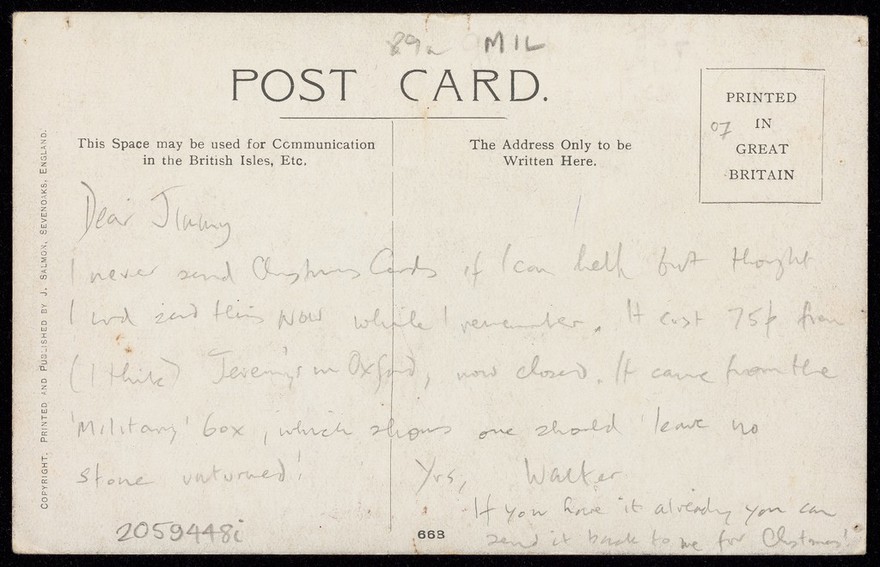 89a MIL
POST CARD.
This Space may be used for Communication
in the British Isles, Etc.
The Address Only to be
Written Here.
PRINTED
IN
GREAT
BRITAIN
07
COPYRIGHT, PRINTED AND PUBLISHED BY J. SALMON, SEVENOAKS, ENGLAND.
Dear Jimmy
I never send Christmas Cards if I can help but thought
I wd send this now while I remember. It cost 75p from
(I think) Jeremy's in Oxford, now closed. It came from the
'Military' box, which shows one should leave no
stone unturned!
Yrs, Walter
If you have it already you can
send it back to me for Christmas!
2059448i
668